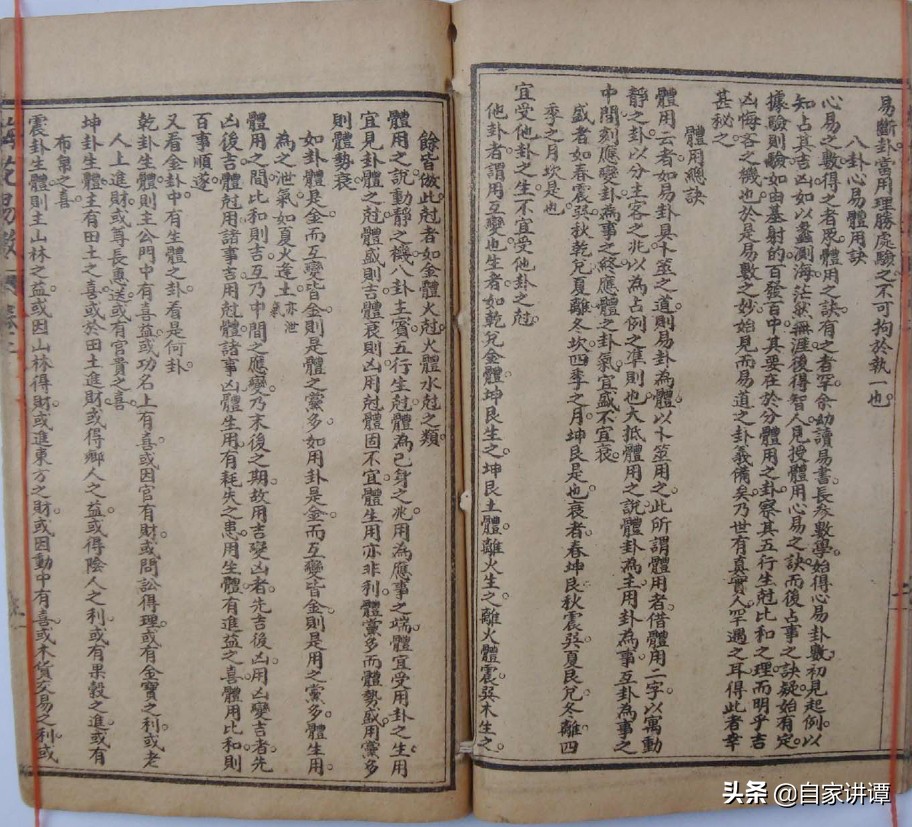 易斷卦當用理勝處驗之不可拘於執一也
八卦心易體用訣
心易之數得之者衆體用之訣有之者罕余幼讀易書長參數學始得心易卦數初見起例以
知占其吉凶如以蠡測海茫然無涯後得智人見授體用心易之訣而後占事之訣疑始有定
據驗則驗如由基射的百發百中其要在於分體用之卦察其五行生尅比和之理而明乎吉
凶悔吝之機也於是易數之妙始見而易道之卦義備矣乃世有真實人罕遇之耳得此者幸
甚秘之
體用總訣
體用云者如易卦具卜筮之道則易卦為體以卜筮用之此所謂體用者借體用二字以寓動
靜之卦以分主客之兆以為占例之準則也大抵體用之說體卦為主用卦為事互卦為事之
中間刻應變卦為事之終應體之卦氣宜盛不宜衰
盛者如春震巽秋乾兌夏離冬坎四季之月坤艮是也衰者春坤艮秋震巽夏艮兌冬離四
季之月坎是也
宜受他卦之生不宜受他卦之尅
他卦者謂用互變也生者如乾兌金體坤艮生之坤艮土體離火生之離火體震巽木生之
餘皆倣此尅者如金體火尅火體水尅之類
體用之說動靜之機八卦主賓五行生尅體為己身之兆用為應事之端體宜受用卦之生用
宜見卦體之尅體盛則吉體衰則凶用尅體固不宜體生用亦非利體黨多而體勢盛用黨多
則體勢衰
如卦體是金而互變皆金則是體之黨多如用卦是金而互變皆金則是用之黨多體生用
為之泄氣如夏火逢土亦泄氣
體用之間比和則吉互乃中間之應變乃末後之期故用吉變凶者先吉後凶用凶變吉者先
凶後吉體尅用諸事吉用尅體諸事凶體生用有耗失之患用生體有進益之喜體用比和則
百事順遂
又看全卦中有生體之卦看是何卦
乾卦生體則主公門中有喜益或功名上有喜或因官有財或問訟得理或有金寶之利或老
人上進財或尊長惠送或有官貴之喜
坤卦生體主有田土之喜或於田土進財或得鄉人之益或得陰人之利或有果穀之進或有
布帛之喜
震卦生體則主山林之益或因山林得財或進東方之財或因動中有喜或木貨交易之利或
梅花易數
卷二
头条 @自家讲谭